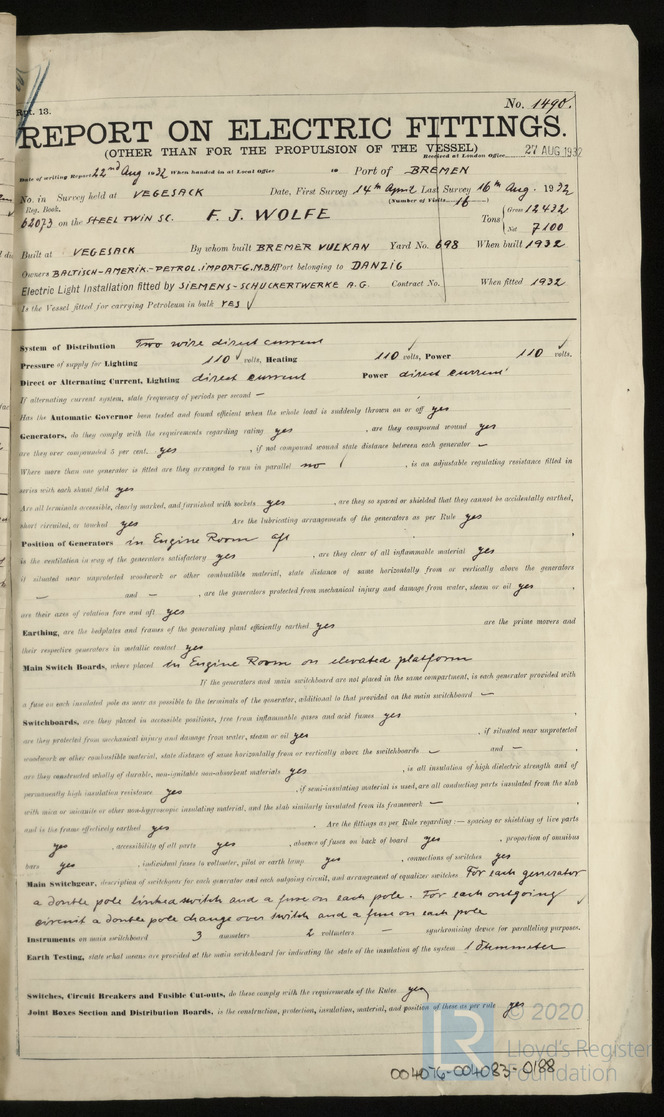 Rpt. 13.
No. 1490.
REPORT ON ELECTRIC FITTINGS.
(OTHER THAN FOR THE PROPULSION OF THE VESSEL)
Received at London Office 27 AUG 1932
Date of writing Report 22nd Aug 1932 When handed in at Local Office 19 Port of BREMEN
No. in Survey held at VEGESACK Date, First Survey 14th April Last Survey 16th Aug. 1932
Reg. Book. (Number of Visits 16)
62073 on the STEEL TWIN SC. F. J. WOLFE Tons { Gross 12432
Net 7100
Built at VEGESACK By whom built BREMER VULKAN Yard No. 698 When built 1932
Owners BALTISCH-AMERIK.-PETROL.IMPORT-G.M.B.H Port belonging to DANZIG
Electric Light Installation fitted by SIEMENS-SCHUCKERTWERKE A.G. Contract No. When fitted 1932
Is the Vessel fitted for carrying Petroleum in bulk YES
System of Distribution Two wire direct current
Pressure of supply for Lighting 110 volts, Heating 110 volts, Power 110 volts.
Direct or Alternating Current, Lighting direct current Power direct current
If alternating current system, state frequency of periods per second —
Has the Automatic Governor been tested and found efficient when the whole load is suddenly thrown on or off yes
Generators, do they comply with the requirements regarding rating yes , are they compound wound yes
are they over compounded 5 per cent. yes , if not compound wound state distance between each generator —
Where more than one generator is fitted are they arranged to run in parallel no , is an adjustable regulating resistance fitted in
series with each shunt field yes
Are all terminals accessible, clearly marked, and furnished with sockets yes , are they so spaced or shielded that they cannot be accidentally earthed,
short circuited, or touched yes Are the lubricating arrangements of the generators as per Rule yes
Position of Generators in Engine Room aft
is the ventilation in way of the generators satisfactory yes , are they clear of all inflammable material yes
if situated near unprotected woodwork or other combustible material, state distance of same horizontally from or vertically above the generators
— and — , are the generators protected from mechanical injury and damage from water, steam or oil yes ,
are their axes of rotation fore and aft yes
Earthing, are the bedplates and frames of the generating plant efficiently earthed yes are the prime movers and
their respective generators in metallic contact yes
Main Switch Boards, where placed in Engine Room on elevated platform
If the generators and main switchboard are not placed in the same compartment, is each generator provided with
a fuse on each insulated pole as near as possible to the terminals of the generator, additional to that provided on the main switchboard —
Switchboards, are they placed in accessible positions, free from inflammable gases and acid fumes yes ,
are they protected from mechanical injury and damage from water, steam or oil yes , if situated near unprotected
woodwork or other combustible material, state distance of same horizontally from or vertically above the switchboards — and — ,
are they constructed wholly of durable, non-ignitable non-absorbent materials yes , is all insulation of high dielectric strength and of
permanently high insulation resistance yes , if semi-insulating material is used, are all conducting parts insulated from the slab
with mica or micanite or other non-hygroscopic insulating material, and the slab similarly insulated from its framework — ,
and is the frame effectively earthed yes . Are the fittings as per Rule regarding:— spacing or shielding of live parts
yes , accessibility of all parts yes , absence of fuses on back of board yes , proportion of omnibus
bars yes , individual fuses to voltmeter, pilot or earth lamp yes , connections of switches yes
Main Switchgear, description of switchgear for each generator and each outgoing circuit, and arrangement of equalizer switches For each generator
a double pole linked switch and a fuse on each pole. For each outgoing
circuit a double pole change over switch and a fuse on each pole
Instruments on main switchboard 3 ammeters 2 voltmeters — synchronising device for paralleling purposes.
Earth Testing, state what means are provided at the main switchboard for indicating the state of the insulation of the system
Switches, Circuit Breakers and Fusible Cut-outs, do these comply with the requirements of the Rules yes
Joint Boxes Section and Distribution Boards, is the construction, protection, insulation, material, and position of these as per rule yes
LR © 2020
Lloyd's Register
Foundation
004076-004083-0188